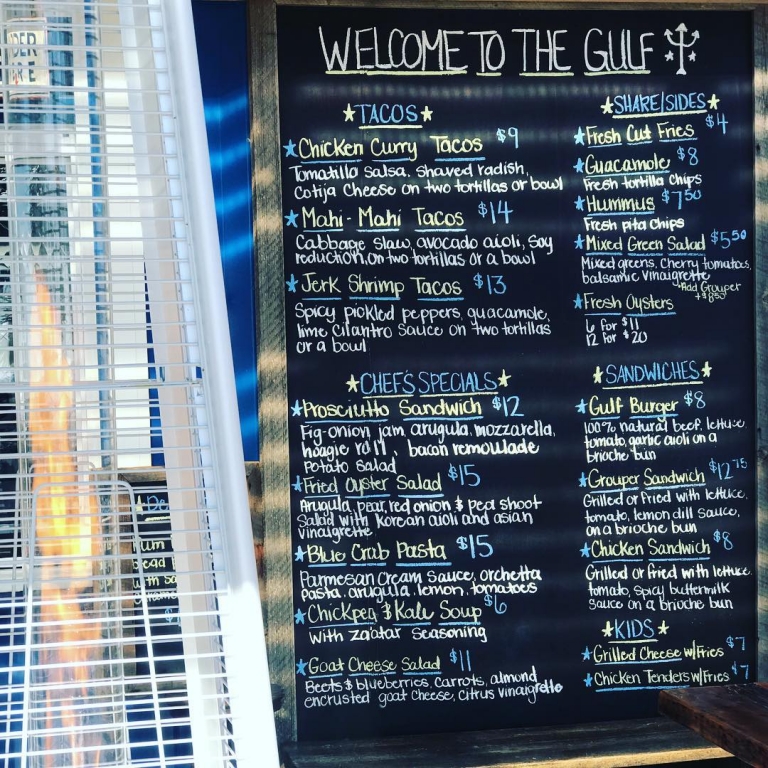 WELCOME TO THE GULF
TACOS
Chicken Curry Tacos $9
Tomatillo salsa, shaved radish,
Cotija Cheese on two tortillas or bowl
Mahi-Mahi Tacos $14
Cabbage slaw, avocado aioli, soy
reduction, on two tortillas or a bowl
Jerk Shrimp Tacos $13
Spicy pickled peppers, guacamole,
lime cilantro sauce on two tortillas
or a bowl
CHEF'S SPECIALS
Prosciutto Sandwich $12
Fig-onion jam, arugula, mozzarella,
hoagie roll, bacon remoulade
Potato Salad
Fried Oyster Salad $15
Arugula, pear, red onion & pea shoot
Salad with Korean aioli and asian
vinaigrette
Blue Crab Pasta $15
Parmesan Cream Sauce, orchetta
pasta, arugula, lemon, tomatoes
Chickpea & Kale Soup $6
with za'atar seasoning
Goat Cheese Salad $11
Beets & blueberries, carrots, almond
encrusted goat cheese, citrus vinaigrette
SHARE/SIDES
Fresh Cut Fries $4
Guacamole $8
Fresh tortilla Chips
Hummus $7.50
Fresh pita Chips
Mixed Green Salad $5.50
Mixed greens, Cherry tomatoes,
balsamic vinaigrette
*Add Grouper
+$8.50
Fresh Oysters
6 for $11
12 for $20
SANDWICHES
Gulf Burger $8
100% natural beef, lettuce,
tomato, garlic aioli on a
brioche bun
Grouper Sandwich $12.75
Grilled or fried with lettuce,
tomato, lemon dill sauce,
on a brioche bun
Chicken Sandwich $8
Grilled or fried with lettuce,
tomato, spicy buttermilk
sauce on a brioche bun
KIDS
Grilled Cheese w/Fries $7
Chicken Tenders w/Fries $7